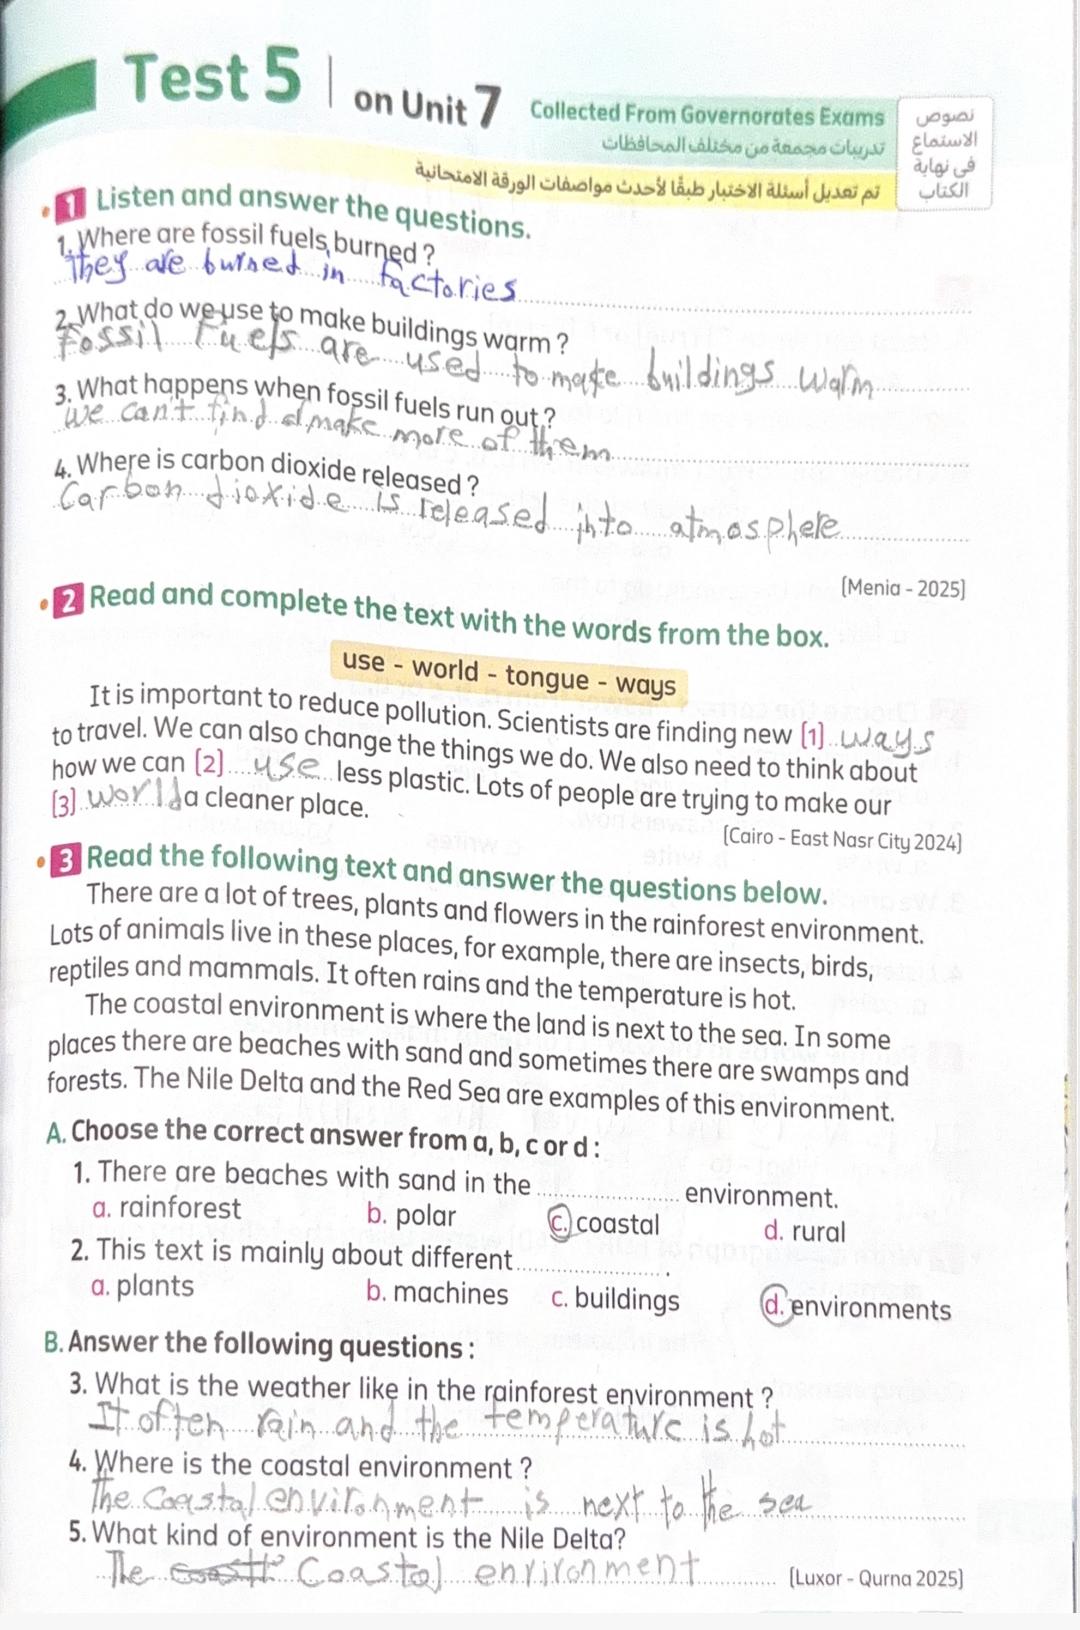 Test 5 | on Unit 7
Collected From Governorates Exams
تدريبات مجمعة من مختلف المحافظات
نصوص
الاستماع
فى نهاية
الكتاب
تم تعديل أسئلة الاختبار طبقًا لأحدث مواصفات الورقة الامتحانية
1 Listen and answer the questions.
1. Where are fossil fuels burned ?
They are burned in factories
2. What do we use to make buildings warm ?
Fossil Fuels are used to make buildings warm
3. What happens when fossil fuels run out ?
We can't find make more of them
4. Where is carbon dioxide released ?
Carbon dioxide is released into atmosphere
(Menia - 2025)
2 Read and complete the text with the words from the box.
use - world - tongue - ways
It is important to reduce pollution. Scientists are finding new (1) ways
to travel. We can also change the things we do. We also need to think about
how we can (2) use less plastic. Lots of people are trying to make our
(3) world a cleaner place.
(Cairo - East Nasr City 2024)
3 Read the following text and answer the questions below.
There are a lot of trees, plants and flowers in the rainforest environment.
Lots of animals live in these places, for example, there are insects, birds,
reptiles and mammals. It often rains and the temperature is hot.
The coastal environment is where the land is next to the sea. In some
places there are beaches with sand and sometimes there are swamps and
forests. The Nile Delta and the Red Sea are examples of this environment.
A. Choose the correct answer from a, b, c or d :
1. There are beaches with sand in the .................... environment.
a. rainforest b. polar c. coastal d. rural
2. This text is mainly about different .................... .
a. plants b. machines c. buildings d. environments
B. Answer the following questions :
3. What is the weather like in the rainforest environment ?
It often rain and the temperature is hot
4. Where is the coastal environment ?
The Coastal environment is next to the sea
5. What kind of environment is the Nile Delta?
The Coastal environment
(Luxor - Qurna 2025)